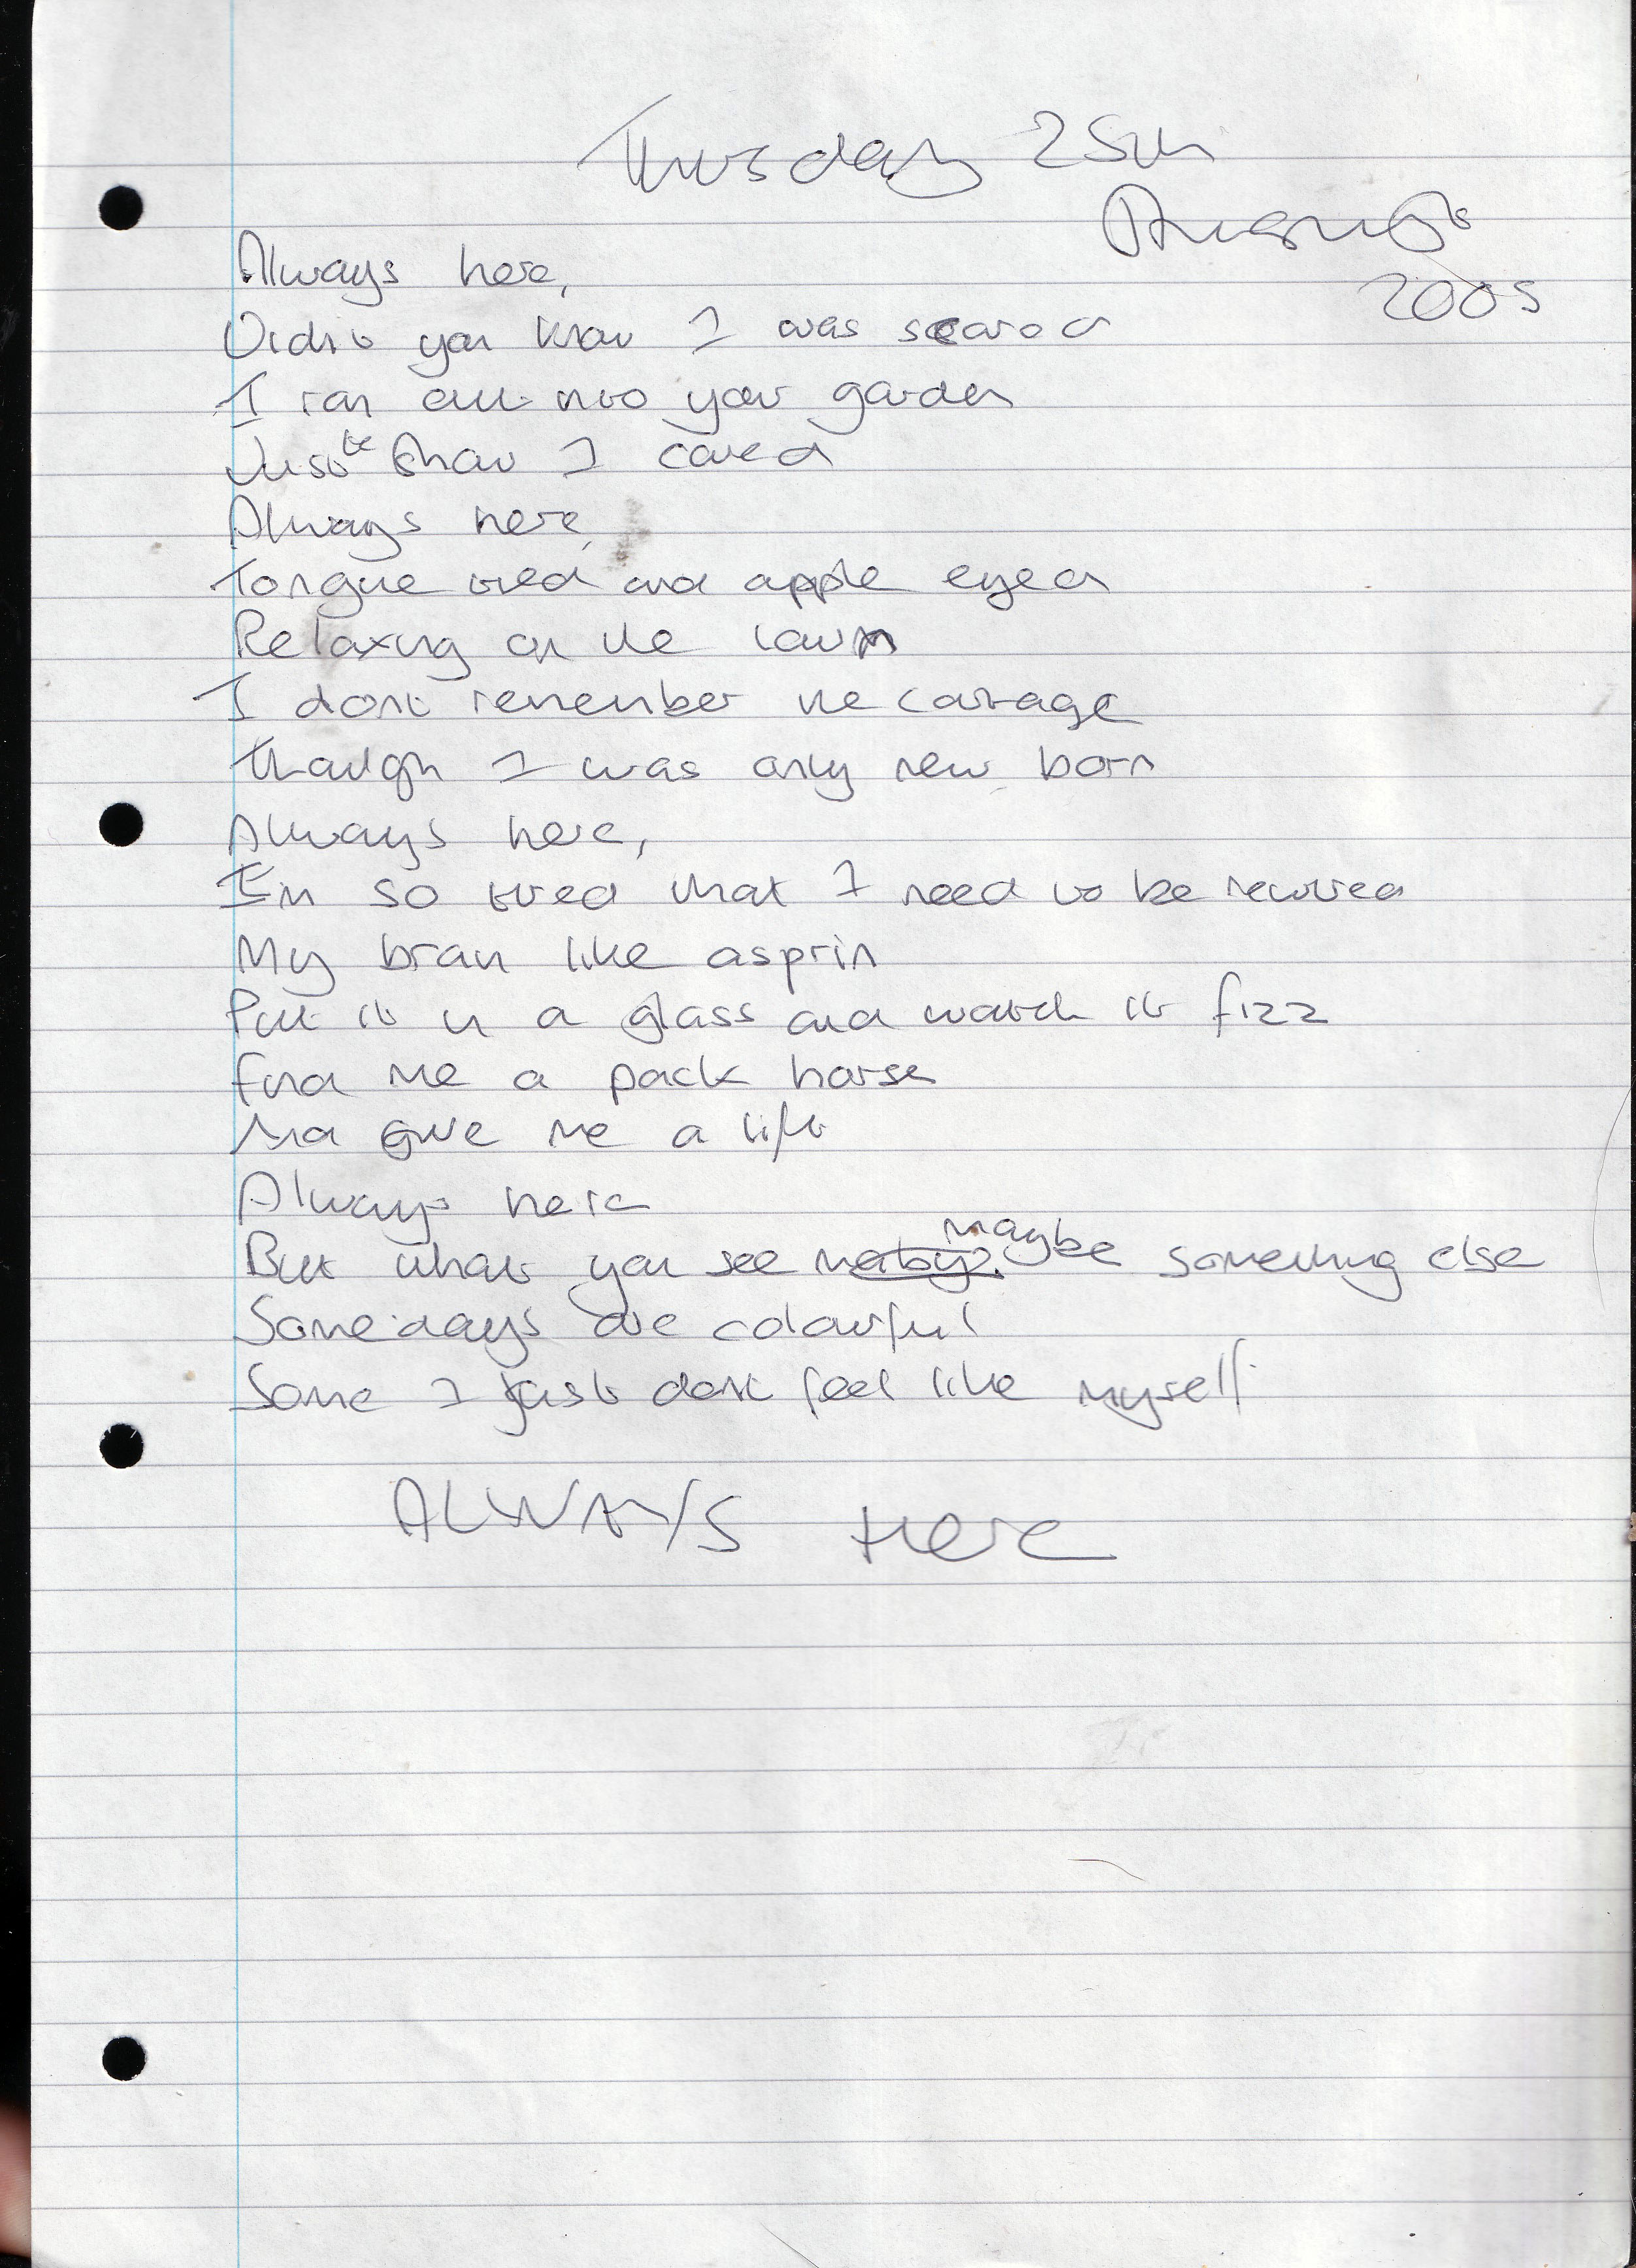 Thursday 25th
August
2005
Always here,
Didnt you know I was scared
I ran out into your garden
Just to show I cared
Always here,
Tongue tied and apple eyed
Relaxing on the lawn
I dont remember the cottage
Though I was only new born
Always here,
Im so tired that I need to be rewired
My brain like asprin
Put it in a glass and watch it fizz
Find me a pack horse
And give me a lift
Always here
But what you see maybe something else
Some days are colourful
Some I just dont feel like myself
ALWAYS Here